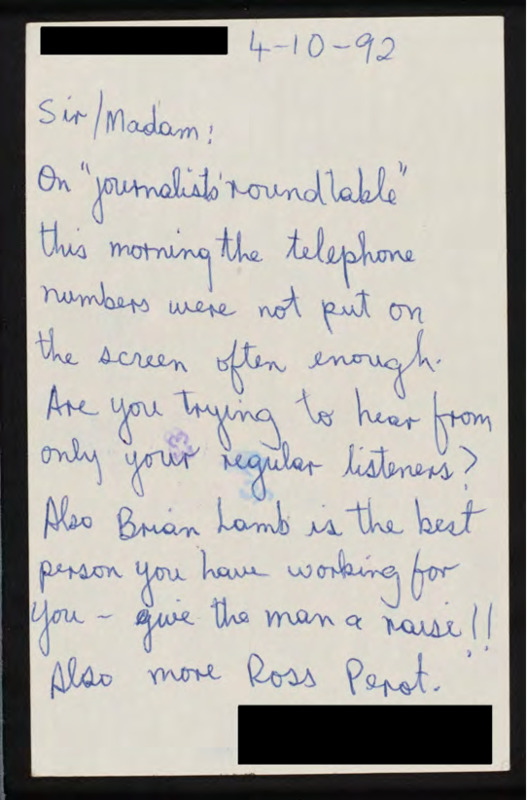 4-10-92
Sir/Madam:
On "journalists' roundtable"
this morning the telephone
numbers were not put on
the screen often enough.
Are you trying to hear from
only your regular listeners?
Also Brian Lamb is the best
person you have working for
you - give the man a raise!!
Also more Ross Perot.